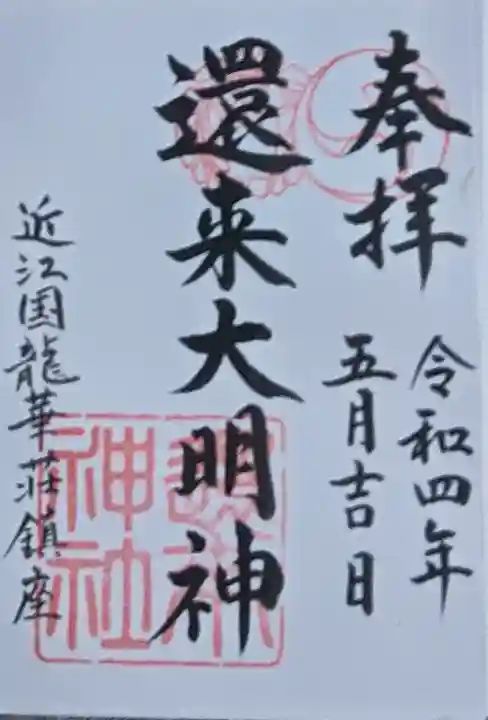 奉拝
令和四年
五月吉日
還来大明神
近江国龍華荘鎮座
神社